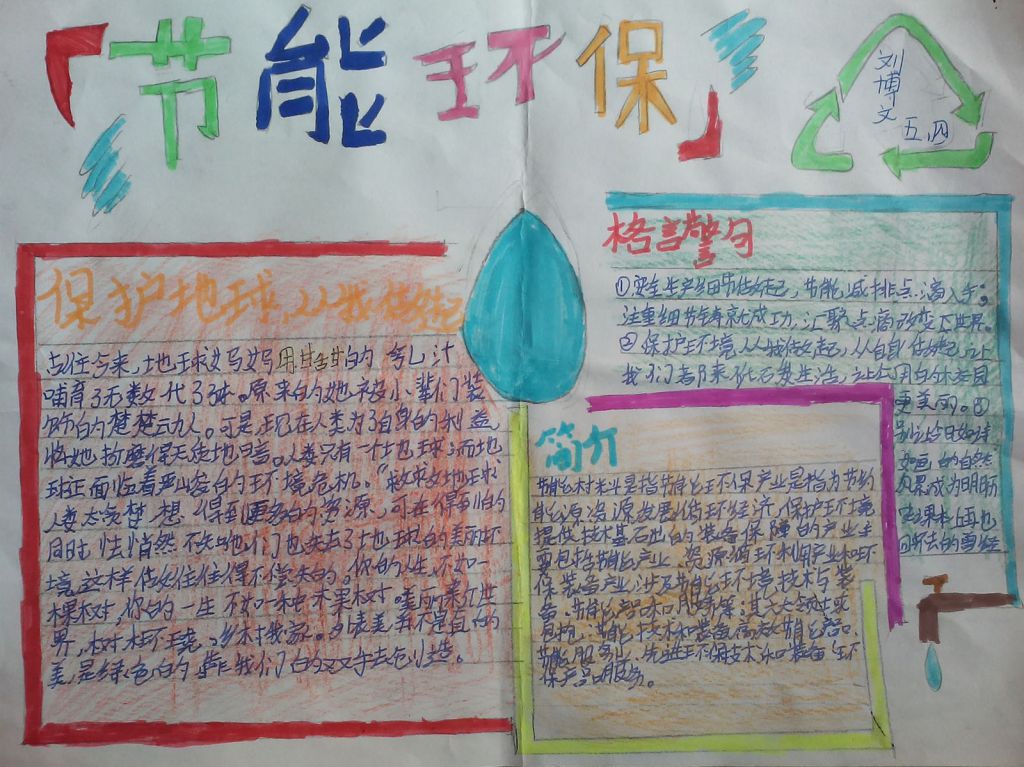 「节能环保」
刘博文
五.四
保护地球,从我做起
古往今来,地球妈妈用甘甜的乳汁
哺育了无数代子孙。原来的她被小辈们装
饰的楚楚动人。可是,现在人类为了自身的利益
将她折磨得。人类只有一个地球;而地
球正面临着严峻的环境危机。"救救地球
人类太贪婪,想得到更多的资源,可在得到的
同时悄然不知他们也失去了地球的美丽环
境,这样做往往得不偿失的。你的人生,不如一
棵树,你的一生不如一棵树
界,树木环境,乡村我家。不是真的
美,是绿色的靠我们的双手去创造。
格言警句
①安全生产细节做起,节能减排点滴入手;
注重细节铸就成功,汇聚点滴改变世界。
②保护环境,从我做起,从自身做起,让
我们者阝来低石炭生活,让
更美丽。③
别让今日如诗
如画的自然
风景成为明朝
回不去的
简介
节能材米斗是指节能环保产业是指为节约
能源资源发展循环经济,保护环境
提供技术基石出的装备保障的产业主
要包括节能产业、资源循环利用产业和环
保装备产业,涉及节能环境技术与装
备、节能产品和服务等;其六大领域
包括:节能技术和装备高效节能产品
节能服务业、先进环保技术和装备环
保产品服务。